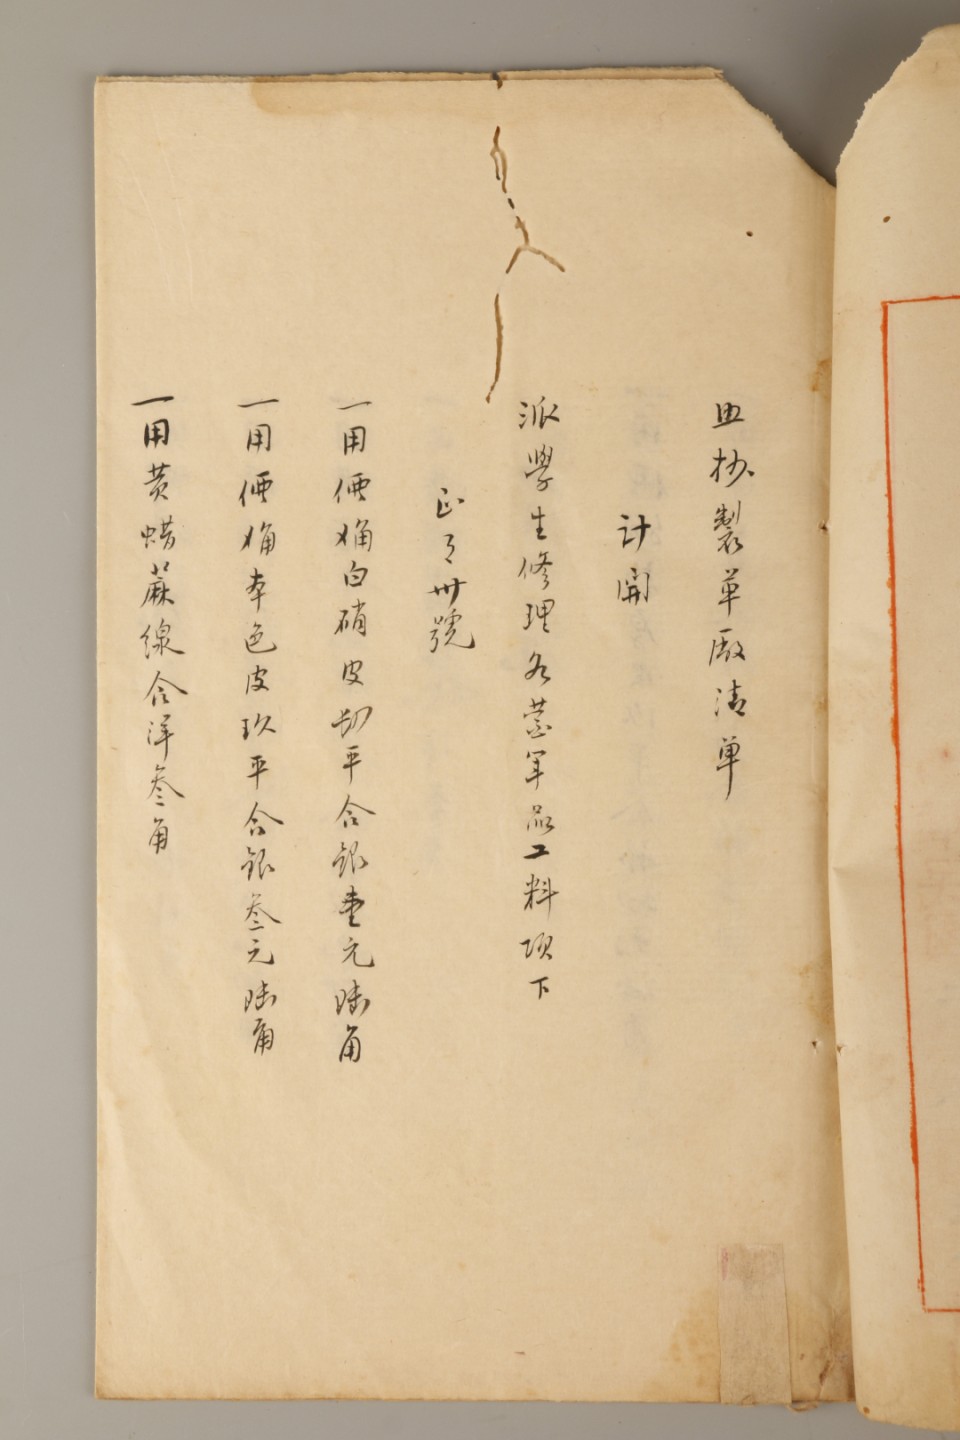 照抄製革廠清單
計開
派學生修理各營軍器工料項下
正月卅號
一用白硝皮肆平合銀壹元陆角
一用本色皮玖平合銀叁元陆角
一用黄蜡蔴線合洋叁角